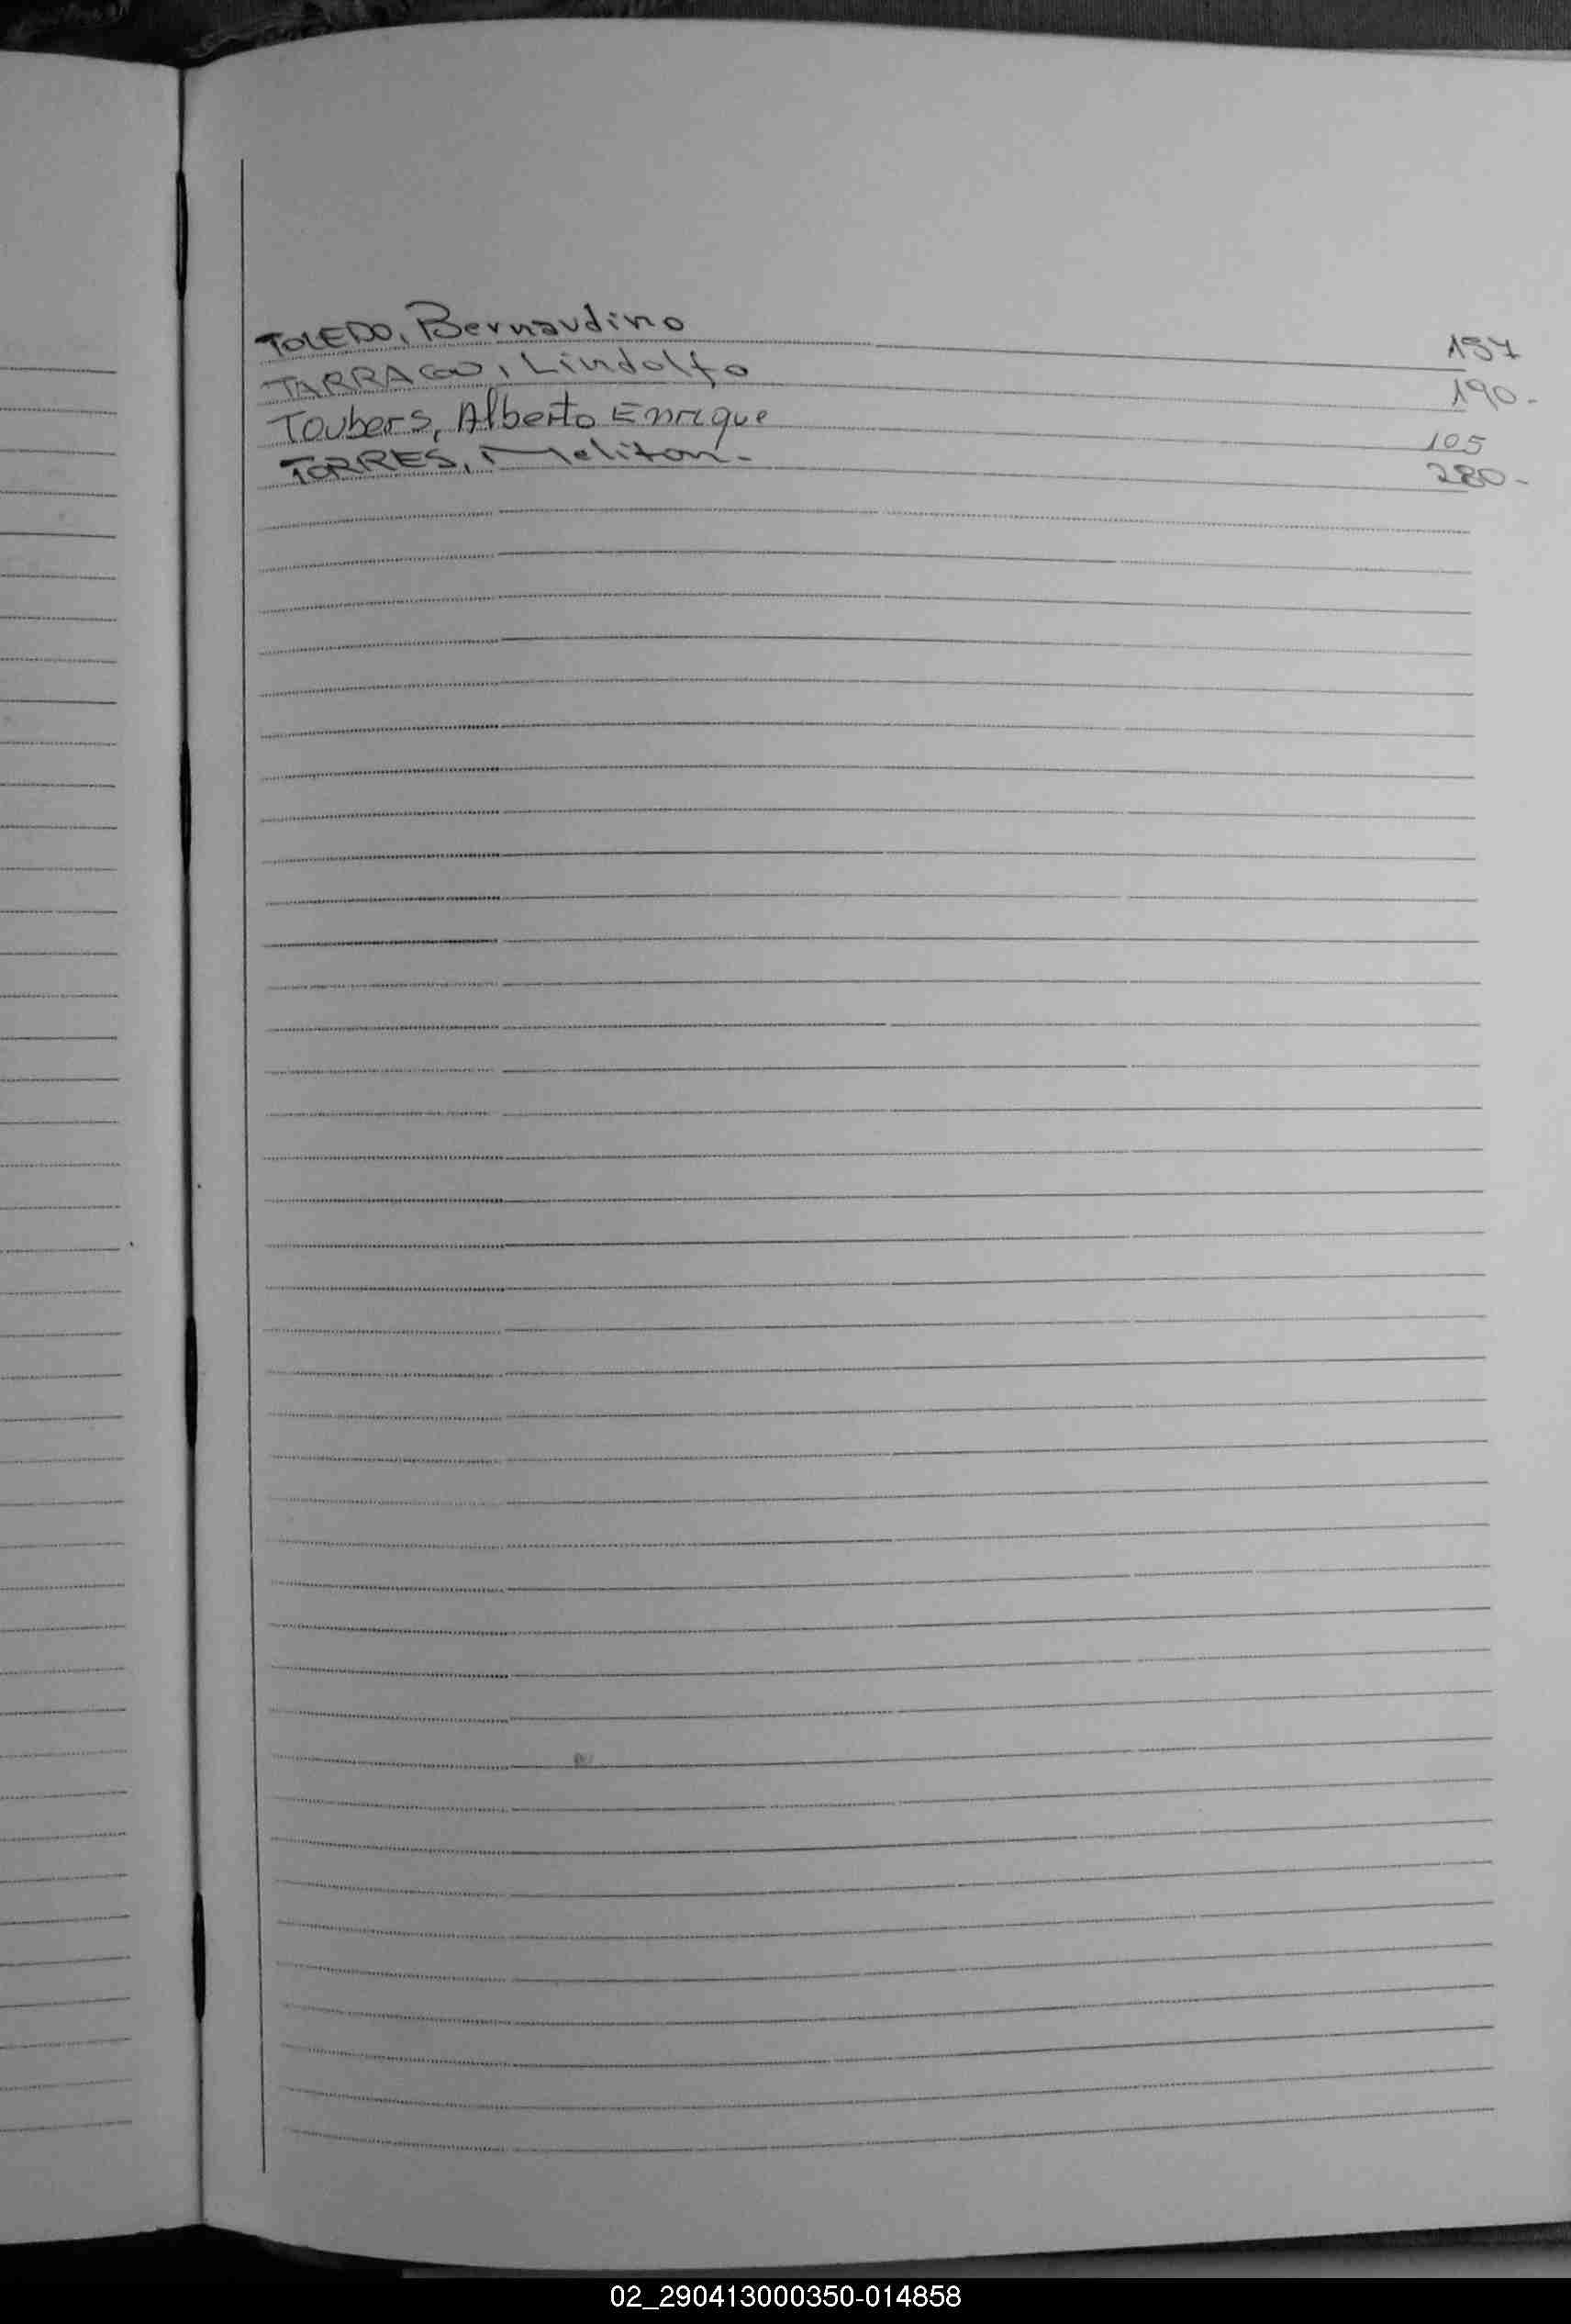 TOLEDO, Bernardino 157
TARRAGO, Lindolfo 190-
Toubers, Alberto Enrique 105
TORRES, Meliton.- 280-
02_290413000350-014858